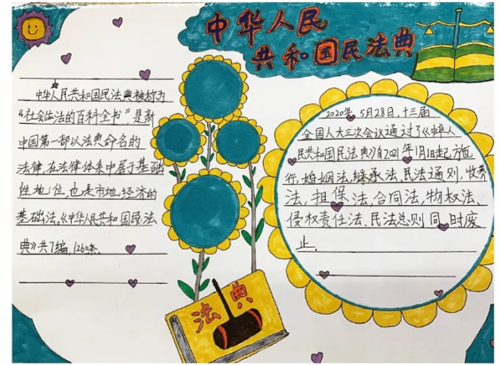 中华人民
共和国民法典
中华人民共和国民法典被称为
“社会治法的百科全书”是新
中国第一部以法典命名的
法律,在法律体系中居于基础
性地位,也是市地,经济的
基础法。《中华人民共和国民法
典》共7编、1260条。
2020年5月28日,十三届
全国人大三次会议通过了《中华人
民共和国民法典》自2021年1月1日起方施
行,婚姻法,继承法,民法通则,收养
法,担保法、合同法、物权法、
侵权责任法、民法总则同时废
止.
法典